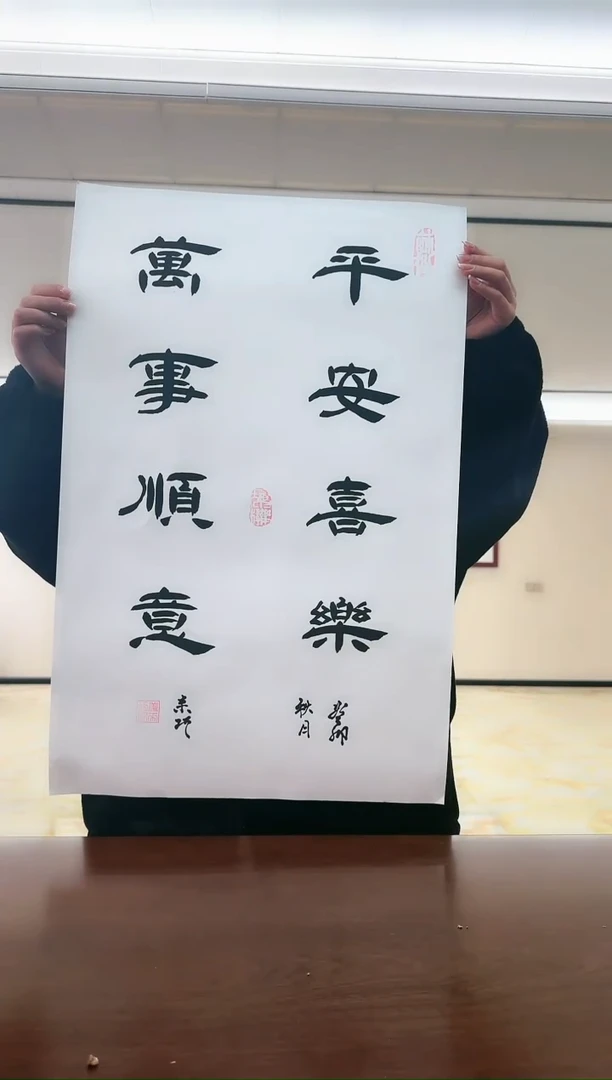 平安喜樂
癸卯
秋月
萬事順意